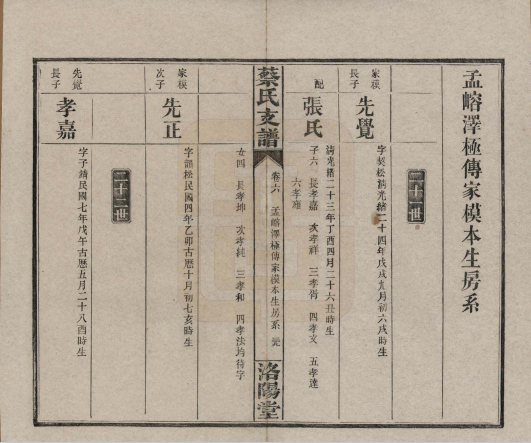 孟嶍澤極傳家模本生房系
二十一世
家模
長子
先覺
字契松清光緒二十四年戊戌九月初六戌時生
配
張氏
清光緒二十三年丁酉四月二十六丑時生
子六 長孝嘉 次孝祥 三孝 四孝文 五孝達
六孝雍
蔡氏支譜
卷六 孟嶍澤極傳家模本生房系
洛陽堂
女四 長孝坤 次孝純 三孝和 四孝法均待字
家模
次子
先正
字謳松民國四年乙卯古曆十月初七亥時生
二十二世
先覺
長子
孝嘉
字子錡民國七年戊午古曆五月二十八酉時生